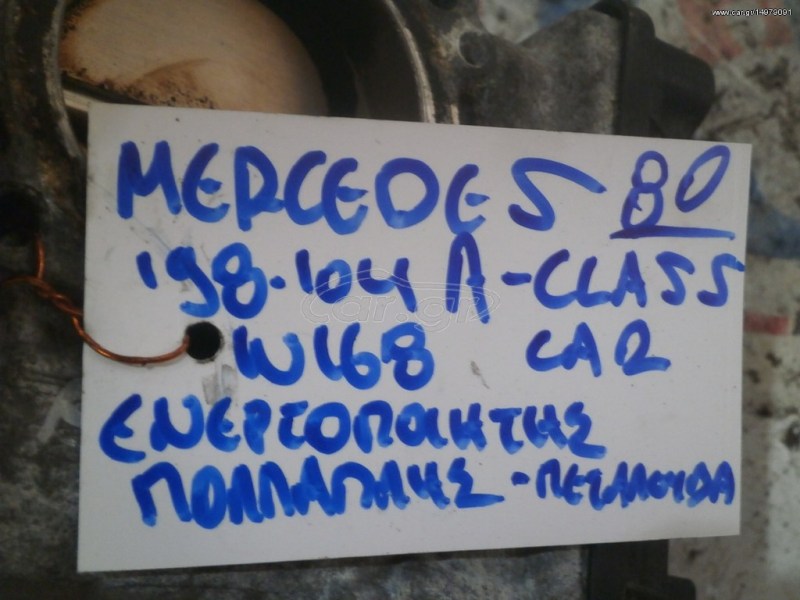 www.car.gr/14979091
MERCEDES 80
'98-'04 A-CLASS
W168 CAR
ΕΝΕΡΓΟΠΟΙΗΤΗΣ
ΠΟΛΛΑΠΛΗΣ - ΠΕΤΑΛΟΥΔΑ
car.gr